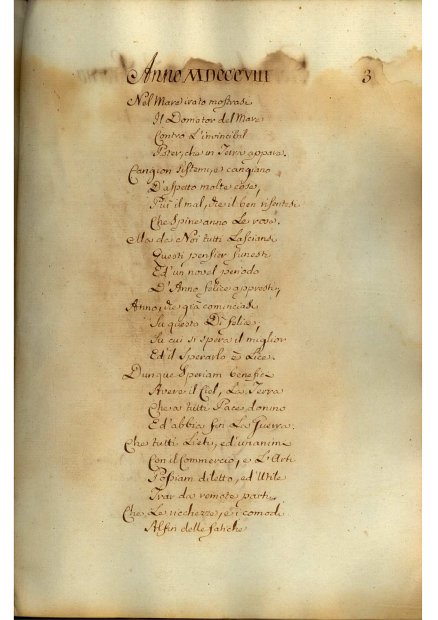 Anno MDCCCVIII
3
Nel Mare irato mostrasi
Il Domator del Mare
Contro L'invincibil
Poter, che in Terra appare.
Cangion sistemi, e cangiano
D'aspetto molte cose,
Più il mal, che il ben risentesi
Che Spine anno Le rose.
Ma da Noi tutti Lasciansi
Questi pensier funesti
Ed'un novel periodo
D'Anno felice appresti,
Anno, che già cominciasi
Su questo Dì felice,
Su cui si spera il miglior
Ed'il Sperarlo è Lice.
Dunque Speriam benefici
Avere il Ciel, La Terra
Che a tutti Pace donino
Ed'abbia fin La Guerra.
Che tutti Lieti, ed'unanimi
Con il Commercio, e L'Arti
Possiam diletto, ed'Utile
Trar da remote parti.
Che Le ricchezze, e i comodi
Alfin delle fatiche